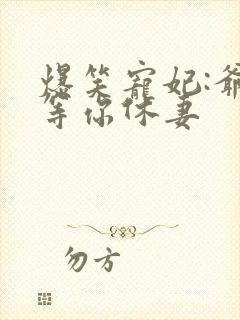 爆笑寵妃:爺
等你休妻
勿方